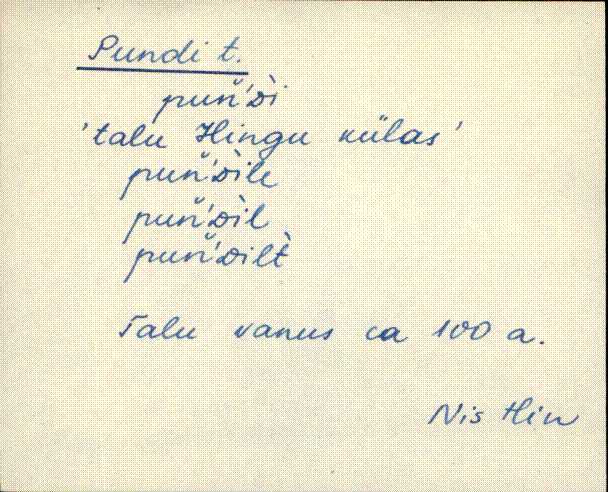 Pundi t.
puň́ᴅ̀i
'talu Hingu külas'
puň́ᴅìle
puň́ᴅìl
puň́ᴅilt̀
Talu vanus ca 100 a.
Nis Hin